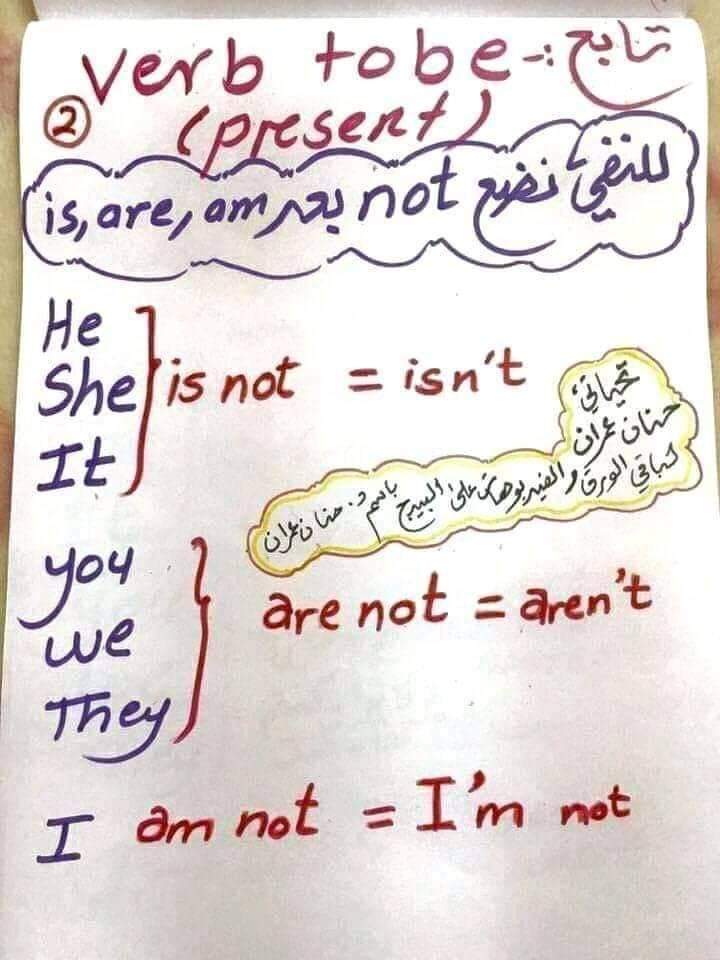 تابع :- Verb to be
② (present)
للنفي نضع not بعد is, are, am
He
She is not = isn't
It
تحياتي
حنان عمران
كباقي الورق والفيديوهات على البيدج باسم د. حنان عمران
you
we are not = aren't
They
I am not = I'm not